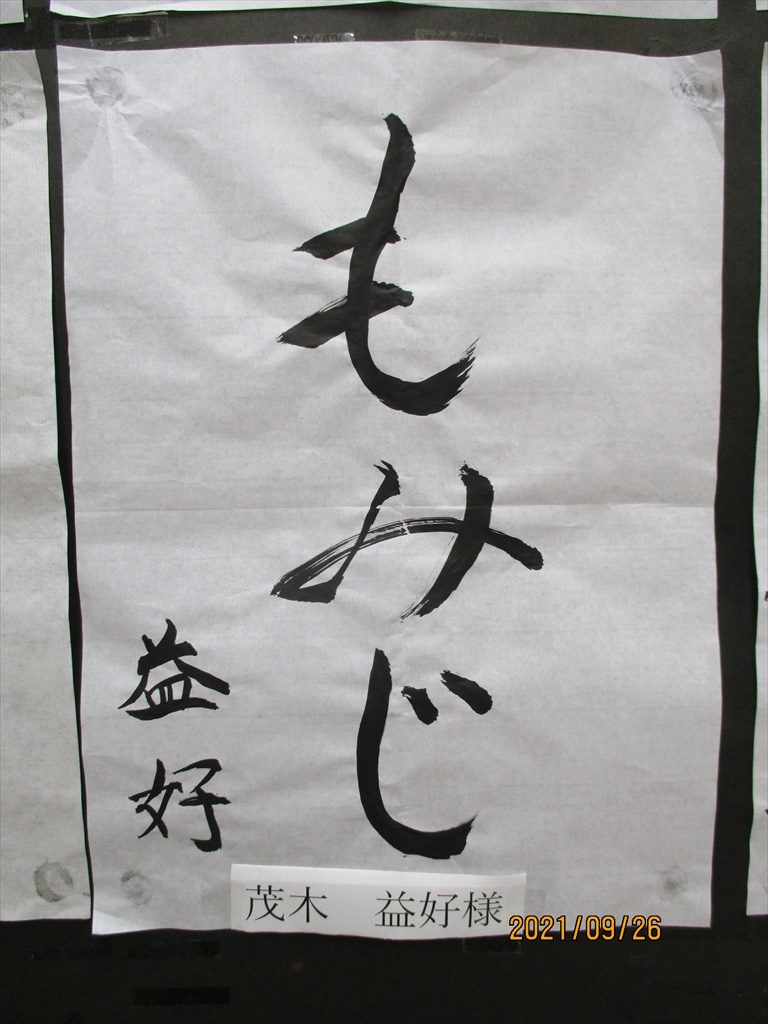 もみじ
益好
茂木　益好様
2021/09/26